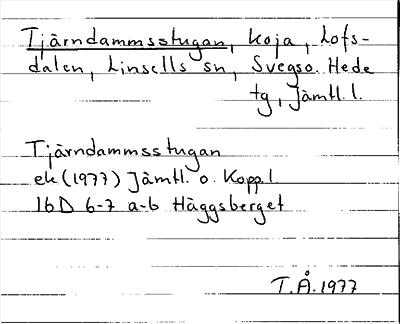 Tjärndammsstugan, koja, Lofs-
dalen, Linsells sn, Svegso. Hede
tg, Jämtl. l.
Tjärndammsstugan
ek (1977) Jämtl. o. Kopp l.
16D 6-7 a-b Häggsberget
T.Å. 1977